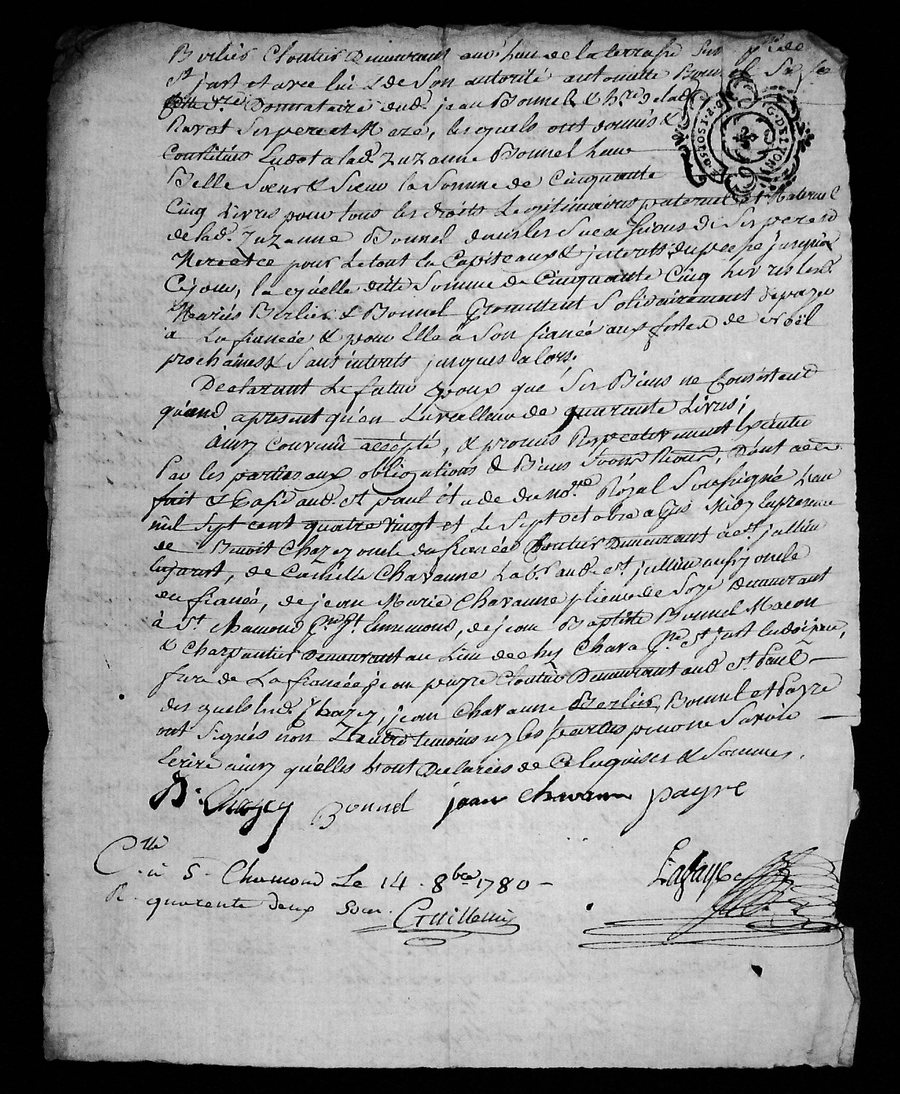 Berlier Cloutier Demeurant au lieu de la terrasse
St just et avec lui & de Son autorité antoinette Bonnel
Donnataire dud. jean Bonnel &
Ravot Ses pere et Mere, lesquels ont donnés &
Constitués En dot a lad. Zuzanne Bonnel Leur
Belle Sœur & Sœur la Somme de Cinquante
Cinq Livres pour tous les droits Legitimaires paternel et Maternel
de lad. Zuzanne Bonnel dans les Successions de Ses pere et
Mere et ce pour Le tout En Capiteaux & jnterets du passé jusqu'a
Ce jour, la quelle dite Somme de Cinquante Cinq Livres les d.
Mariés Berlier & Bonnel Promettent Solidairement de payer
a La fiancée & pour Elle à Son fiancé aux fettes de Noël
prochaines & Sans interets jusques alors.
Declarant Le futur Epoux que Ses Biens ne Consistent
quand apresent qu'en La valleur de quarante Livres;
ainsy Convenu accepté, & promis Respectivement
Par les parties aux obligations de Biens Dont acte
fait & Passé aud. St paul Etude du no.re Royal Soussigné L'an
mil Sept cent quatre vingt et le Sept octobre apres Midy En presence
de Benoit Chazey oncle du fiancé Cloutier Demeurant a St jullien
En jarest, de Camille Chavanne La. aud. St jullien aussy oncle
du fiancé, de jean Marie Chavanne plieur de Soye Demeurant
à St Chamond St Ennemond, de jean Baptiste Bonnel Macon
& Charpentier Demeurant au Lieu de chez Chara St just
frere de La fiancée & jean payre Cloutier Demeurant aud. St Paul
des quels led. Chazey, jean Chavanne Berlier, Bonnel et payre
ont Signés non L'autre temoins ny les parties pour ne Savoir
Ecrire ainsy qu'elles L'ont Declarées de Ce Enquises & Sommées.
B. Chazey Bonnel jean Chavanne payre
C.lle à S. Chamond Le 14. 8bre 1780
R. quarente deux sous.
Lafaye